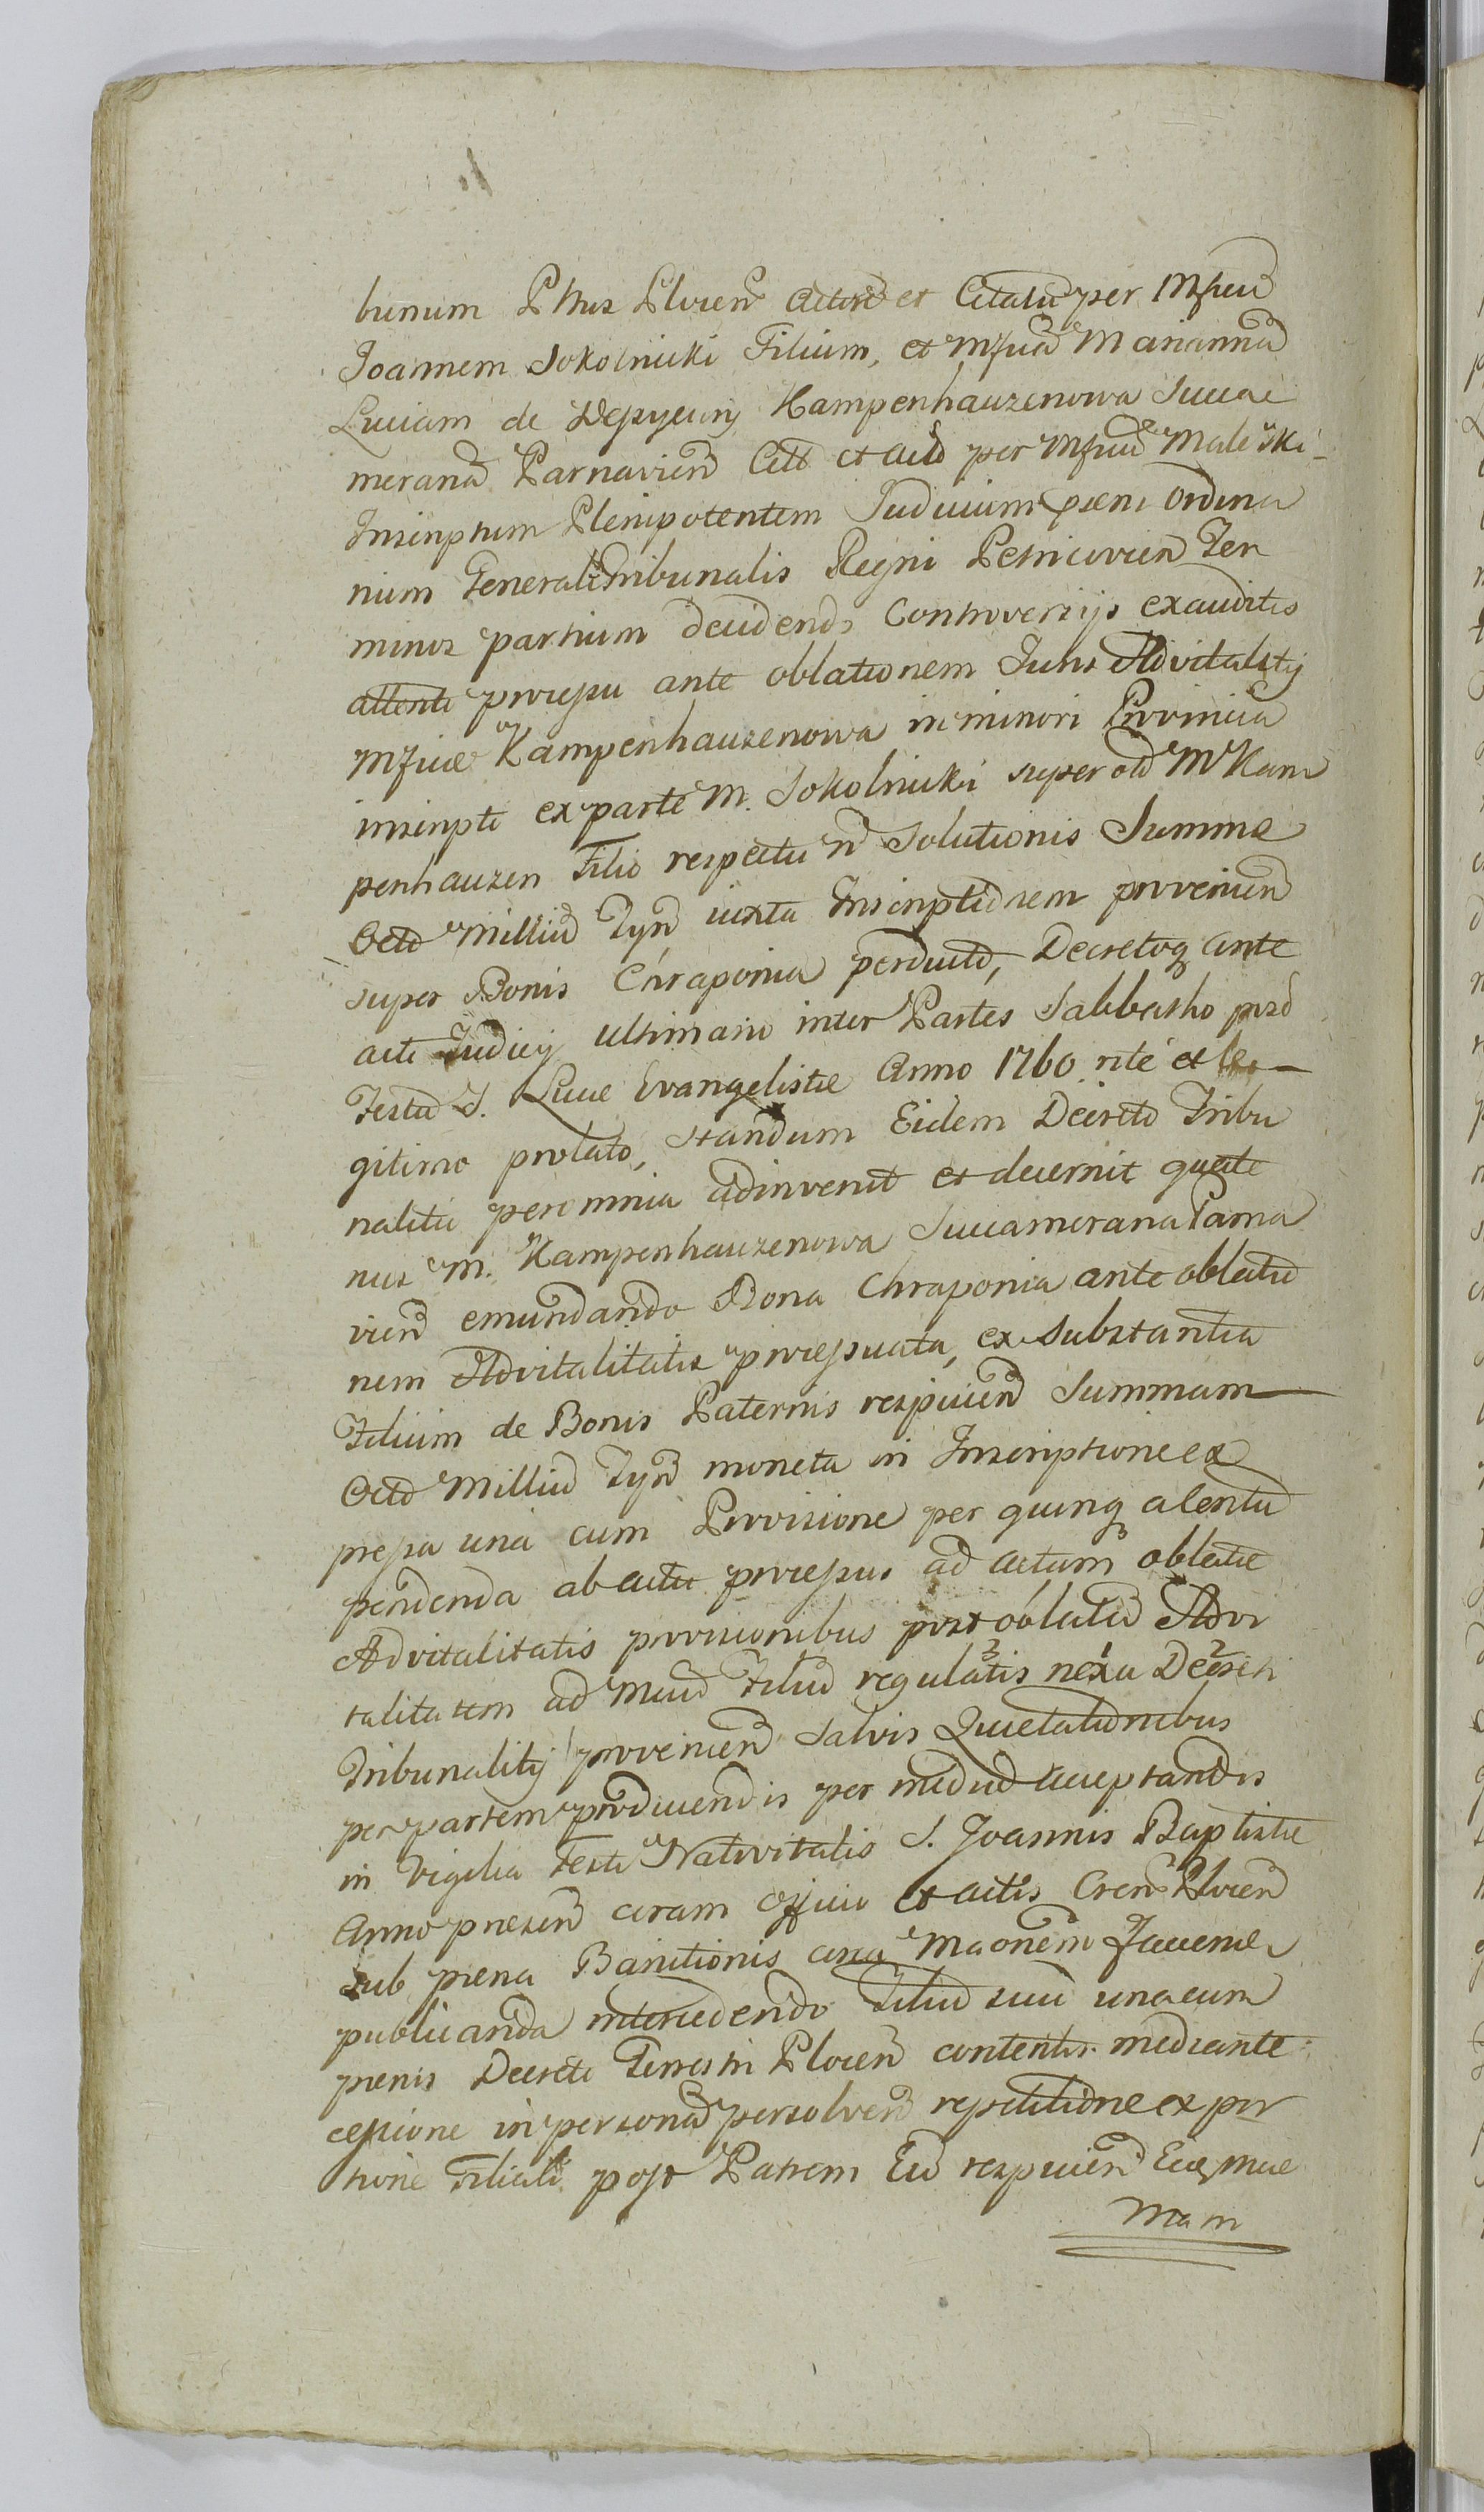 bunum Pttus Plocen Actore et Citatu per Mfcum
Joannem Sokolnicki Filium, et Mfca Marianna
Luciam de Kampenhauzenowa Succa
merana Parnavien Citt et Acto per Mfcum Maleski
Inscriptum Plenipotentem Judicium pñs Ordina
rium Generalis Tribunalis Regni Petricovien Ter
minos partium decidends Controversijs exauditis
attento processu ante oblationem Juris Advitalitij
Mficæ Kampenhauzenowa in minori Provincia
inscripti ex parte M. Sokolnicki super M Kam
penhauzen Filio respectu ñ Solutionis Summæ
Octo Milliu Tyn iuxta Inscriptionem provenien
super Bonis Chraponia perducto, Decretoq ante
acti Judicij ultimario inter Partes Sabbatho post
Festu S. Lucæ Evangelistæ Anno 1760 rite et le
gitime prolato, standum Eidem Decreto Tribu
nalitio per omnia adinvenit et decernit quate
nus M. Kampenhauzenowa Succamerana Parna
vien emundando Bona Chraponia ante oblatio
nem Advitalitatis processuata, ex substantia
Filium de Bonis Paternis respicien Summam
Octo Milliu Tyn moneta in Inscriptione ex
pressa una cum Provisione per quinq a Centu
pendenda ab actu processus ad actum oblatæ
Advitalitatis provisionibus post oblatu Advi
talitatem ad Mcum Filiu regulatis nexu Decreti
Tribunalitij provenien Salvis Quietationibus
per partem producendis per acceptandis
in Vigilia Festi Nativitatis S. Joannis Baptistæ
Anno præsen coram Officio et actis Cren Plocen
sub pæna Banitionis circa Maonem Facienda
publicanda intercedendo Filiu suu una cum
pænis Decreti Terrestri Plocen contentis mediante
cessione in persona persolven repetitione ex por
tione Filiali post Patrem Eu respicien
Mam